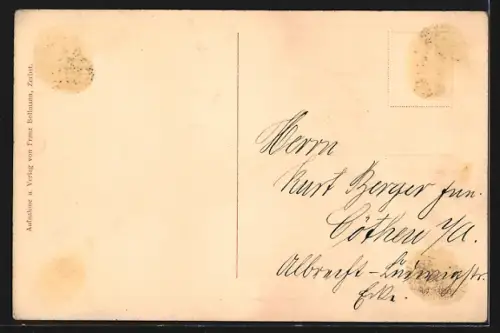 Aufnahme u. Verlag von Franz Bellmann, Zerbst.
Herrn
Kurt Berger jun.
Cöthen i/A.
Albrecht-Ludwigstr.
Ecke.